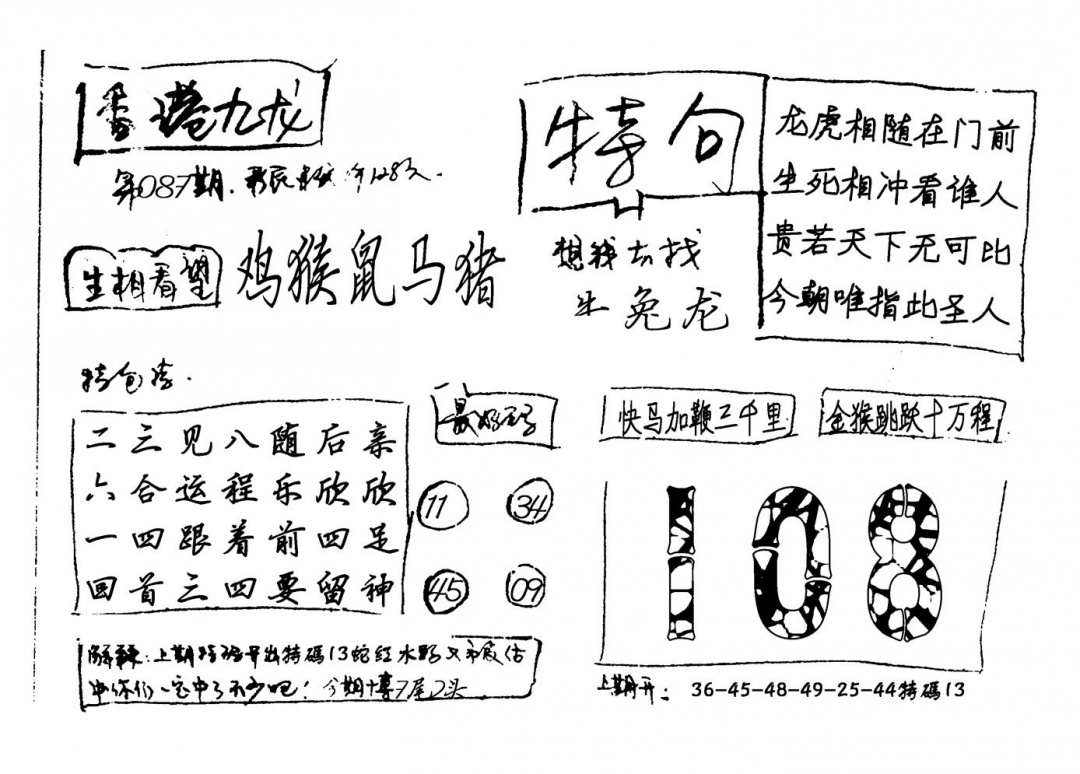 香港九龙
第087期.
生相看望
鸡猴鼠马猪
特句
想我去找
牛兔龙
龙虎相随在门前
生死相冲看谁人
贵若天下无可比
今朝唯指此圣人
特包
二三见八随后亲
六合运程乐欣欣
一四跟着前四足
回首三四要留神
最好
11
34
45
09
快马加鞭三千里
金猴跳跃十万程
108
解释:上期特码开出特碼13蛇红水野又
中你们一定中了不少吧!今期博7尾2头
上期开: 36-45-48-49-25-44特碼13